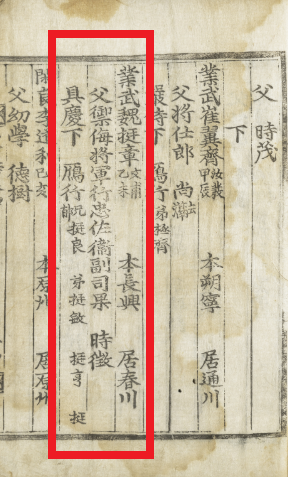 父 時茂
下
業武崔翼齊 甲辰 本朔寧 居通川
父將仕郎 尚
嚴侍下 鴈行弟極齊
業武魏挺章 文甫 乙未 本長興 居春川
父禦侮將軍行忠佐衛副司果 時徵
具慶下 鴈行兄挺良 弟挺敏 挺亨 挺
閑良李達和 己亥 本原州 居原州
父幼學 德樹